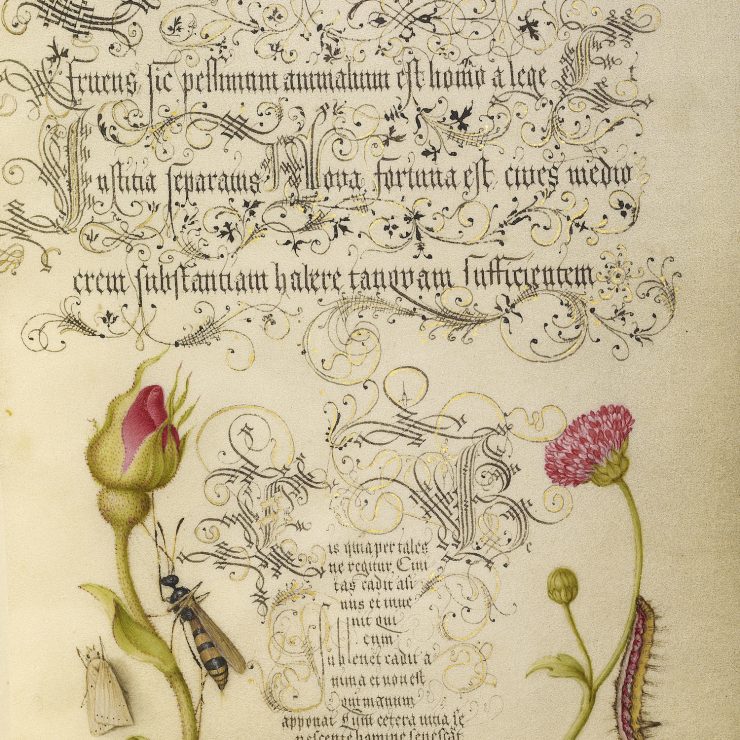 fruens sic pessimum animalium est homo a lege E
Iustitia separatus Nova fortuna est cives medio
crem substantiam habere tanquam sufficientem
is quia per tales
ne regitur, Civi
tas cadit asi
nus et inue
nit qui
cum
sublevet cadit a
nima et non est
qui manum
apponat Cum cetera vitia se
nescente homine senescat